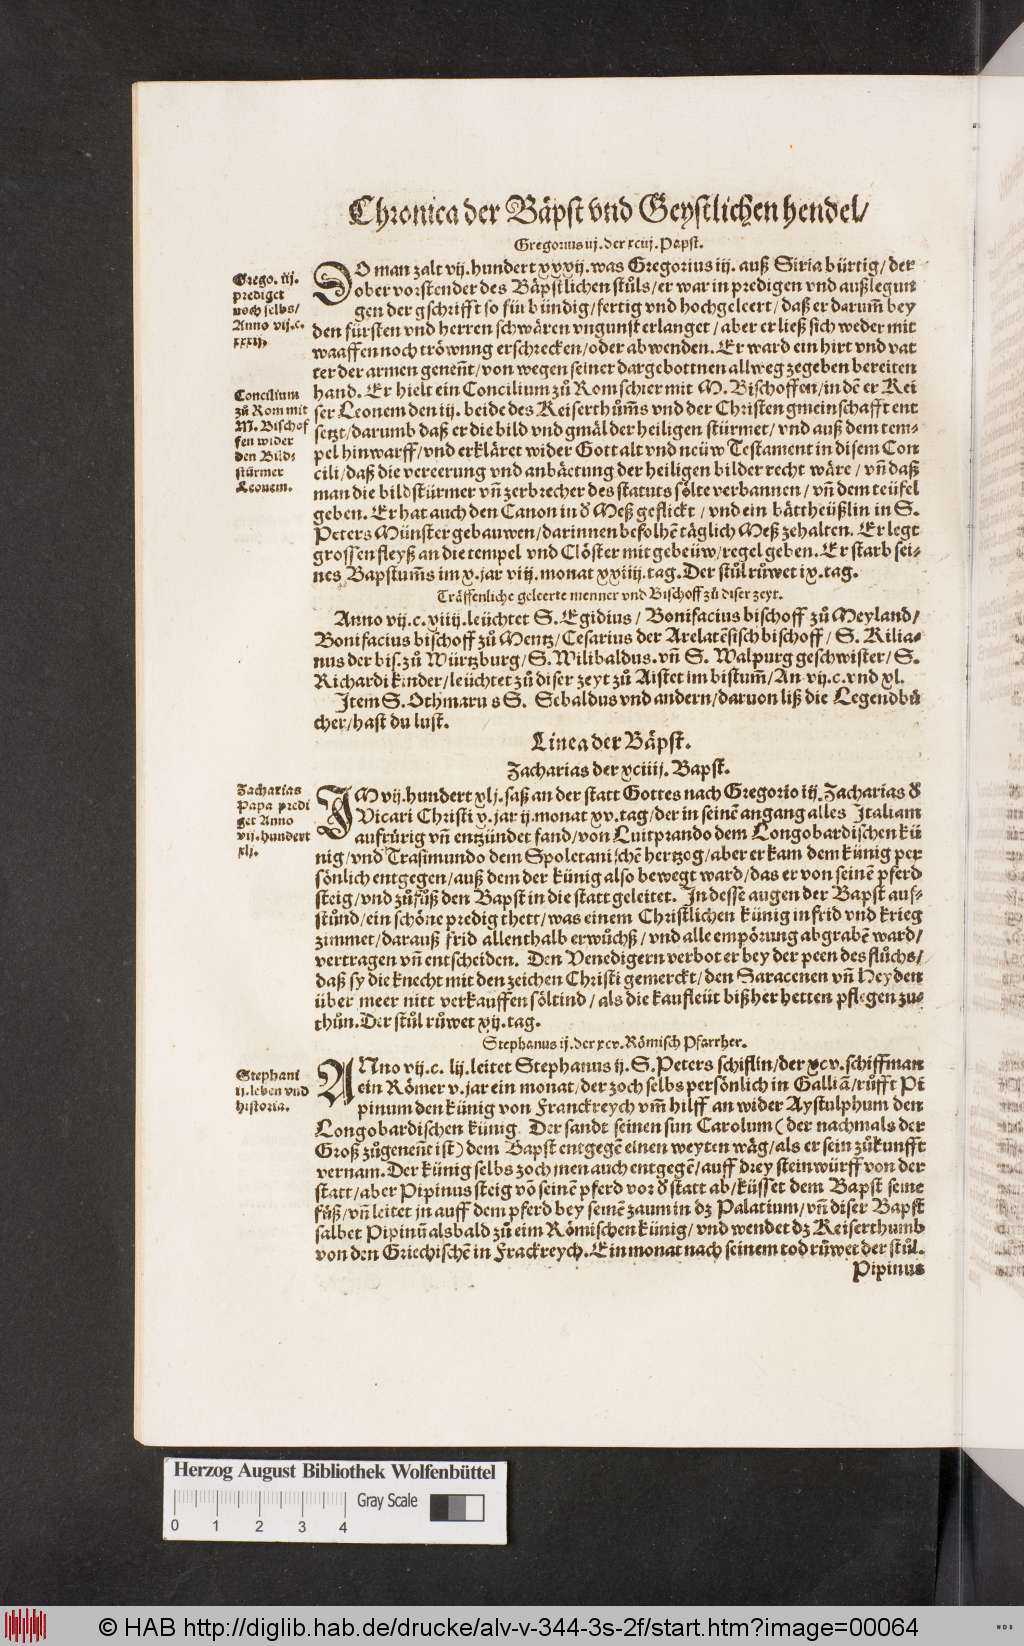 Chronica der Bäpst vnd Geystlichen hendel/
Gregorius iij. der xciij. Papst.
Grego. iij.
prediget
noch selbs/
Anno vij.c.
xxxij.
DO man zalt vij. hundert xxxij. was Gregorius iij. auß Siria bürtig/ der
ober vorstender des Bäpstlichen stůls/ er war in predigen vnd außlegun
gen der gschrifft so fün bündig/ fertig vnd hochgeleert/ daß er darum̃ bey
den fürsten vnd herren schwären vngunst erlanget/ aber er ließ sich weder mit
waaffen noch tröwung erschrecken/ oder abwenden. Er ward ein hirt vnd vat
ter der armen genen̄t/ von wegen seiner dargebottnen allweg zegeben bereiten
Concilium
zů Rom mit
M. Bischof
fen wider
den Bild-
stürmer
Leonem.
hand. Er hielt ein Concilium zů Rom schier mit M. Bischoffen/ in dē er Kei
ser Leonem den iij. beide des Keiserthům̃s vnd der Christen gmeinschafft ent
setzt/ darumb daß er die bild vnd gmäl der heiligen stürmet/ vnd auß dem tem-
pel hinwarff/ vnd erkläret wider Gott alt vnd neüw Testament in disem Con
cili/ daß die vereerung vnd anbäetung der heiligen bilder recht wäre/ vn̄ daß
man die bildstürmer vn̄ zerbrecher des statuts sölte verbannen/ vn̄ dem teüfel
geben. Er hat auch den Canon in d Meß geflickt/ vnd ein bättheüßlin in S.
Peters Münster gebauwen/ darinnen befolhē täglich Meß zehalten. Er legt
grossen fleyß an die tempel vnd Clöster mit gebeüw/ regel geben. Er starb sei-
nes Bapstum̃s im x. jar viij. monat xxiiij. tag. Der stůl růwet ix. tag.
Träffenliche geleerte menner vnd Bischoff zů diser zeyt.
Anno vij.c.xiiij. leüchtet S. Egidius/ Bonifacius bischoff zů Meyland/
Bonifacius bischoff zů Mentz/ Cesarius der Arelatēsisch bischoff/ S. Kilia-
nus der bis. zů Würtzburg/ S. Wilibaldus. vn̄ S. Walpurg geschwister/ S.
Richardi kinder/ leüchtet zů diser zeyt zů Aistet im bistum̃/ An. vij.c. vnd xl.
Item S. Othmarus S. Sebaldus vnd andern/ daruon liß die Legendbů
cher/ hast du lust.
Linea der Bäpst.
Zacharias der xciiij. Bapst.
Zacharias
Papa predi
get Anno
vij. hundert
xlj.
IM vij. hundert xlj. saß an der statt Gottes nach Gregorio iij. Zacharias d
Vicari Christi x. jar ij. monat xv. tag/ der in seinē angang alles Italiam
aufrůrig vn̄ entzündet fand/ von Luitprando dem Longobardischen kü
nig/ vnd Trasimundo dem Spoletanischē hertzog/ aber er kam dem künig per
sönlich entgegen/ auß dem der künig also bewegt ward/ das er von seinē pferd
steig/ vnd zůfůß den Bapst in die statt geleitet. In desse augen der Bapst auf-
stůnd/ ein schöne predig thett/ was einem Christlichen künig in frid vnd krieg
zimmet/ darauß frid allenthalb erwůchß/ vnd alle empörung abgrabē ward/
vertragen vn̄ entscheiden. Den Venedigern verbot er bey der peen des flůchs/
daß sy die knecht mit den zeichen Christi gemerckt/ den Saracenen vn̄ Heyden
über meer nitt verkauffen söltind/ als die kaufleüt bißher hetten pflegen zu-
thůn. Der stůl růwet xij. tag.
Stephanus ij. der xcv. Römisch Pfarrher.
Stephani
ij. leben vnd
historia.
ANno vij.c. lij. leitet Stephanus ij. S. Peters schiflin/ der xcv. schiffman
ein Römer v. jar ein monat/ der zoch selbs persönlich in Galliā/ růfft Pi
pinum den künig von Franckreych vm̄ hilff an wider Aystulphum den
Longobardischen künig. Der sandt seinen sun Carolum (der nachmals der
Groß zůgenent ist) dem Bapst entgegē einen weyten wäg/ als er sein zůkunfft
vernam. Der künig selbs zoch jnen auch entgegē/ auff drey steinwürff von der
statt/ aber Pipinus steig vō seinē pferd vor d statt ab/ küsset dem Bapst seine
fůß/ vn̄ leitet jn auff dem pferd bey seinē zaum in dz Palatium/ vn̄ diser Bapst
salbet Pipinū alsbald zů eim Römischen künig/ vnd wendet dz Keiserthumb
von den Griechischē in Frackreych. Ein monat nach seinem tod růwet der stůl.
Pipinus
Herzog August Bibliothek Wolfenbüttel
Gray Scale
0 1 2 3 4
© HAB http://diglib.hab.de/drucke/alv-v-344-3s-2f/start.htm?image=00064